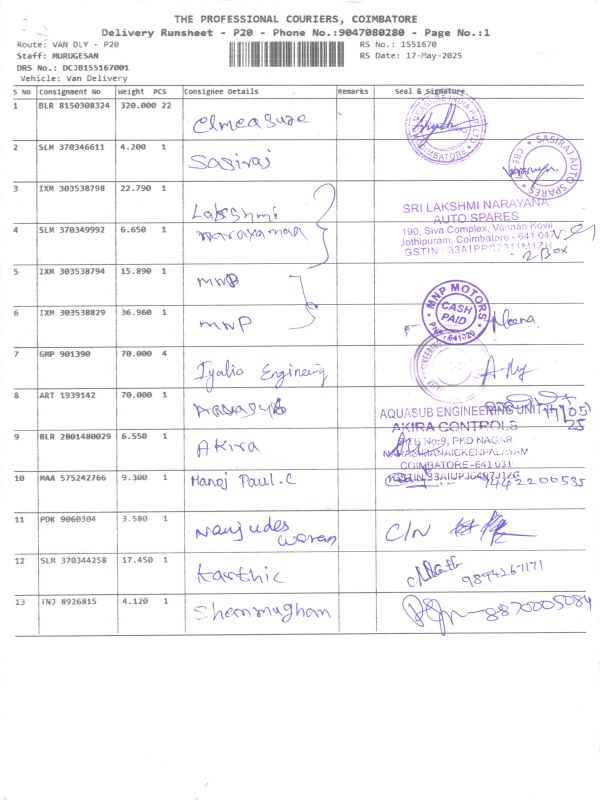 THE PROFESSIONAL COURIERS, COIMBATORE
Delivery Runsheet - P20 - Phone No.:9047080280 - Page No.:1
Route: VAN DLY - P20 RS No.: 1551670
Staff: MURUGESAN RS Date: 17-May-2025
DRS No.: DCJB155167001
Vehicle: Van Delivery
S No Consignment No Weight PCS Consignee Details Remarks Seal & Signature
1 BLR 8150308324 320.000 22 Elmeasure
2 SLM 370346611 4.200 1 Sasiraj
SASIRAJ AUTO SPARES
3 IXM 303538798 22.790 1 Lakshmi
SRI LAKSHMI NARAYANA
AUTO SPARES
4 SLM 370349992 6.650 1 Narayanaa
190, Siva Complex, Vannan Kovil
Jothipuram, Coimbatore - 641 047
2 Box
5 IXM 303538794 15.890 1 MNP
MNP MOTORS
CASH PAID
641020
6 IXM 303538829 36.960 1 MNP Meena
7 GMP 901390 70.000 4 Iyalia Engineering
8 ART 1939142 70.000 1
AQUASUB ENGINEERING UNIT 17/05/25
AKIRA CONTROLS
9 BLR 2801480029 6.550 1 Akira
PKD NAGAR
NARASIMANAICKENPALAYAM
COIMBATORE-641 031
10 MAA 575242766 9.300 1 Manoj Paul.C 9442206535
11 PDK 9060304 3.580 1 Manjudes waran C/N
12 SLM 370344258 17.450 1 Karthic 9894267171
13 TNJ 8926815 4.120 1 Shanmugham 8870005084